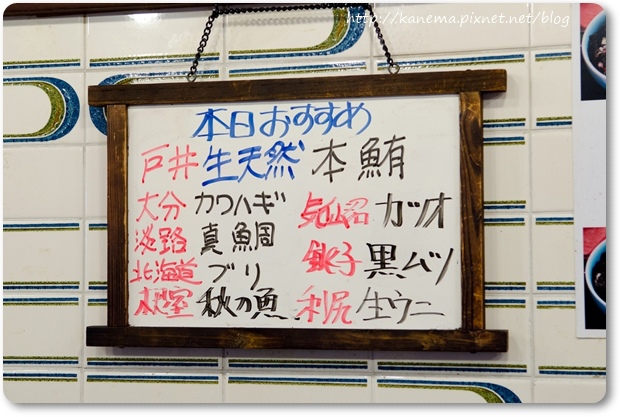 http://kanema.pixnet.net/blog
本日おすすめ
戸井 生天然 本鮪
大分 カワハギ
淡路 真鯛
北海道 ブリ
根室 秋の魚
気仙沼 カツオ
銚子 黒ムツ
利尻 生ウニ